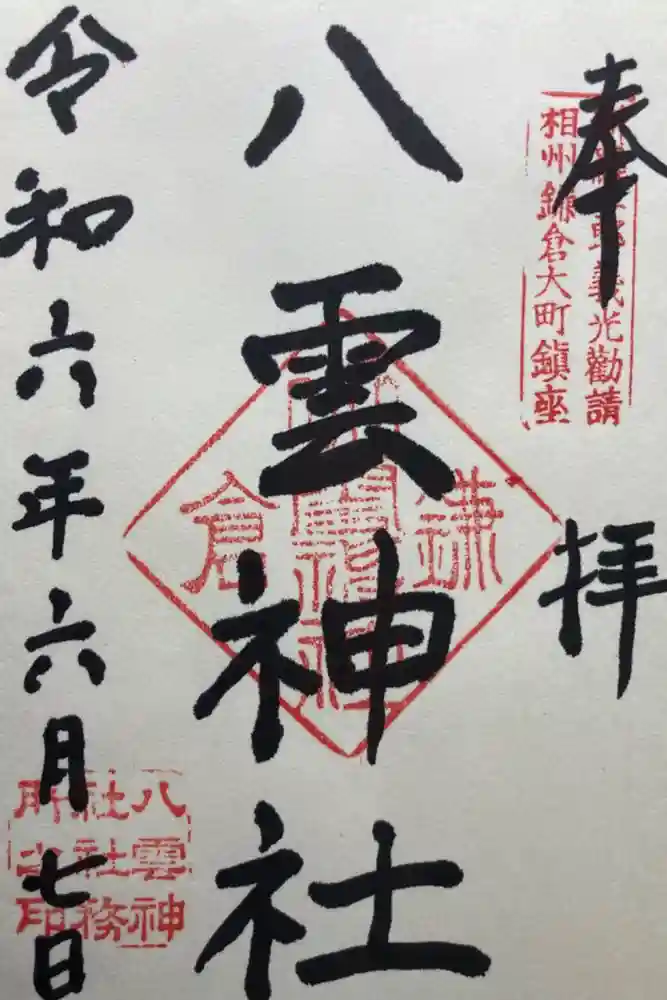 奉拝
義光勸請
相州鎌倉大町鎮座
八雲神社
鎌倉
令和六年六月七日
八雲神
社社務
所之印